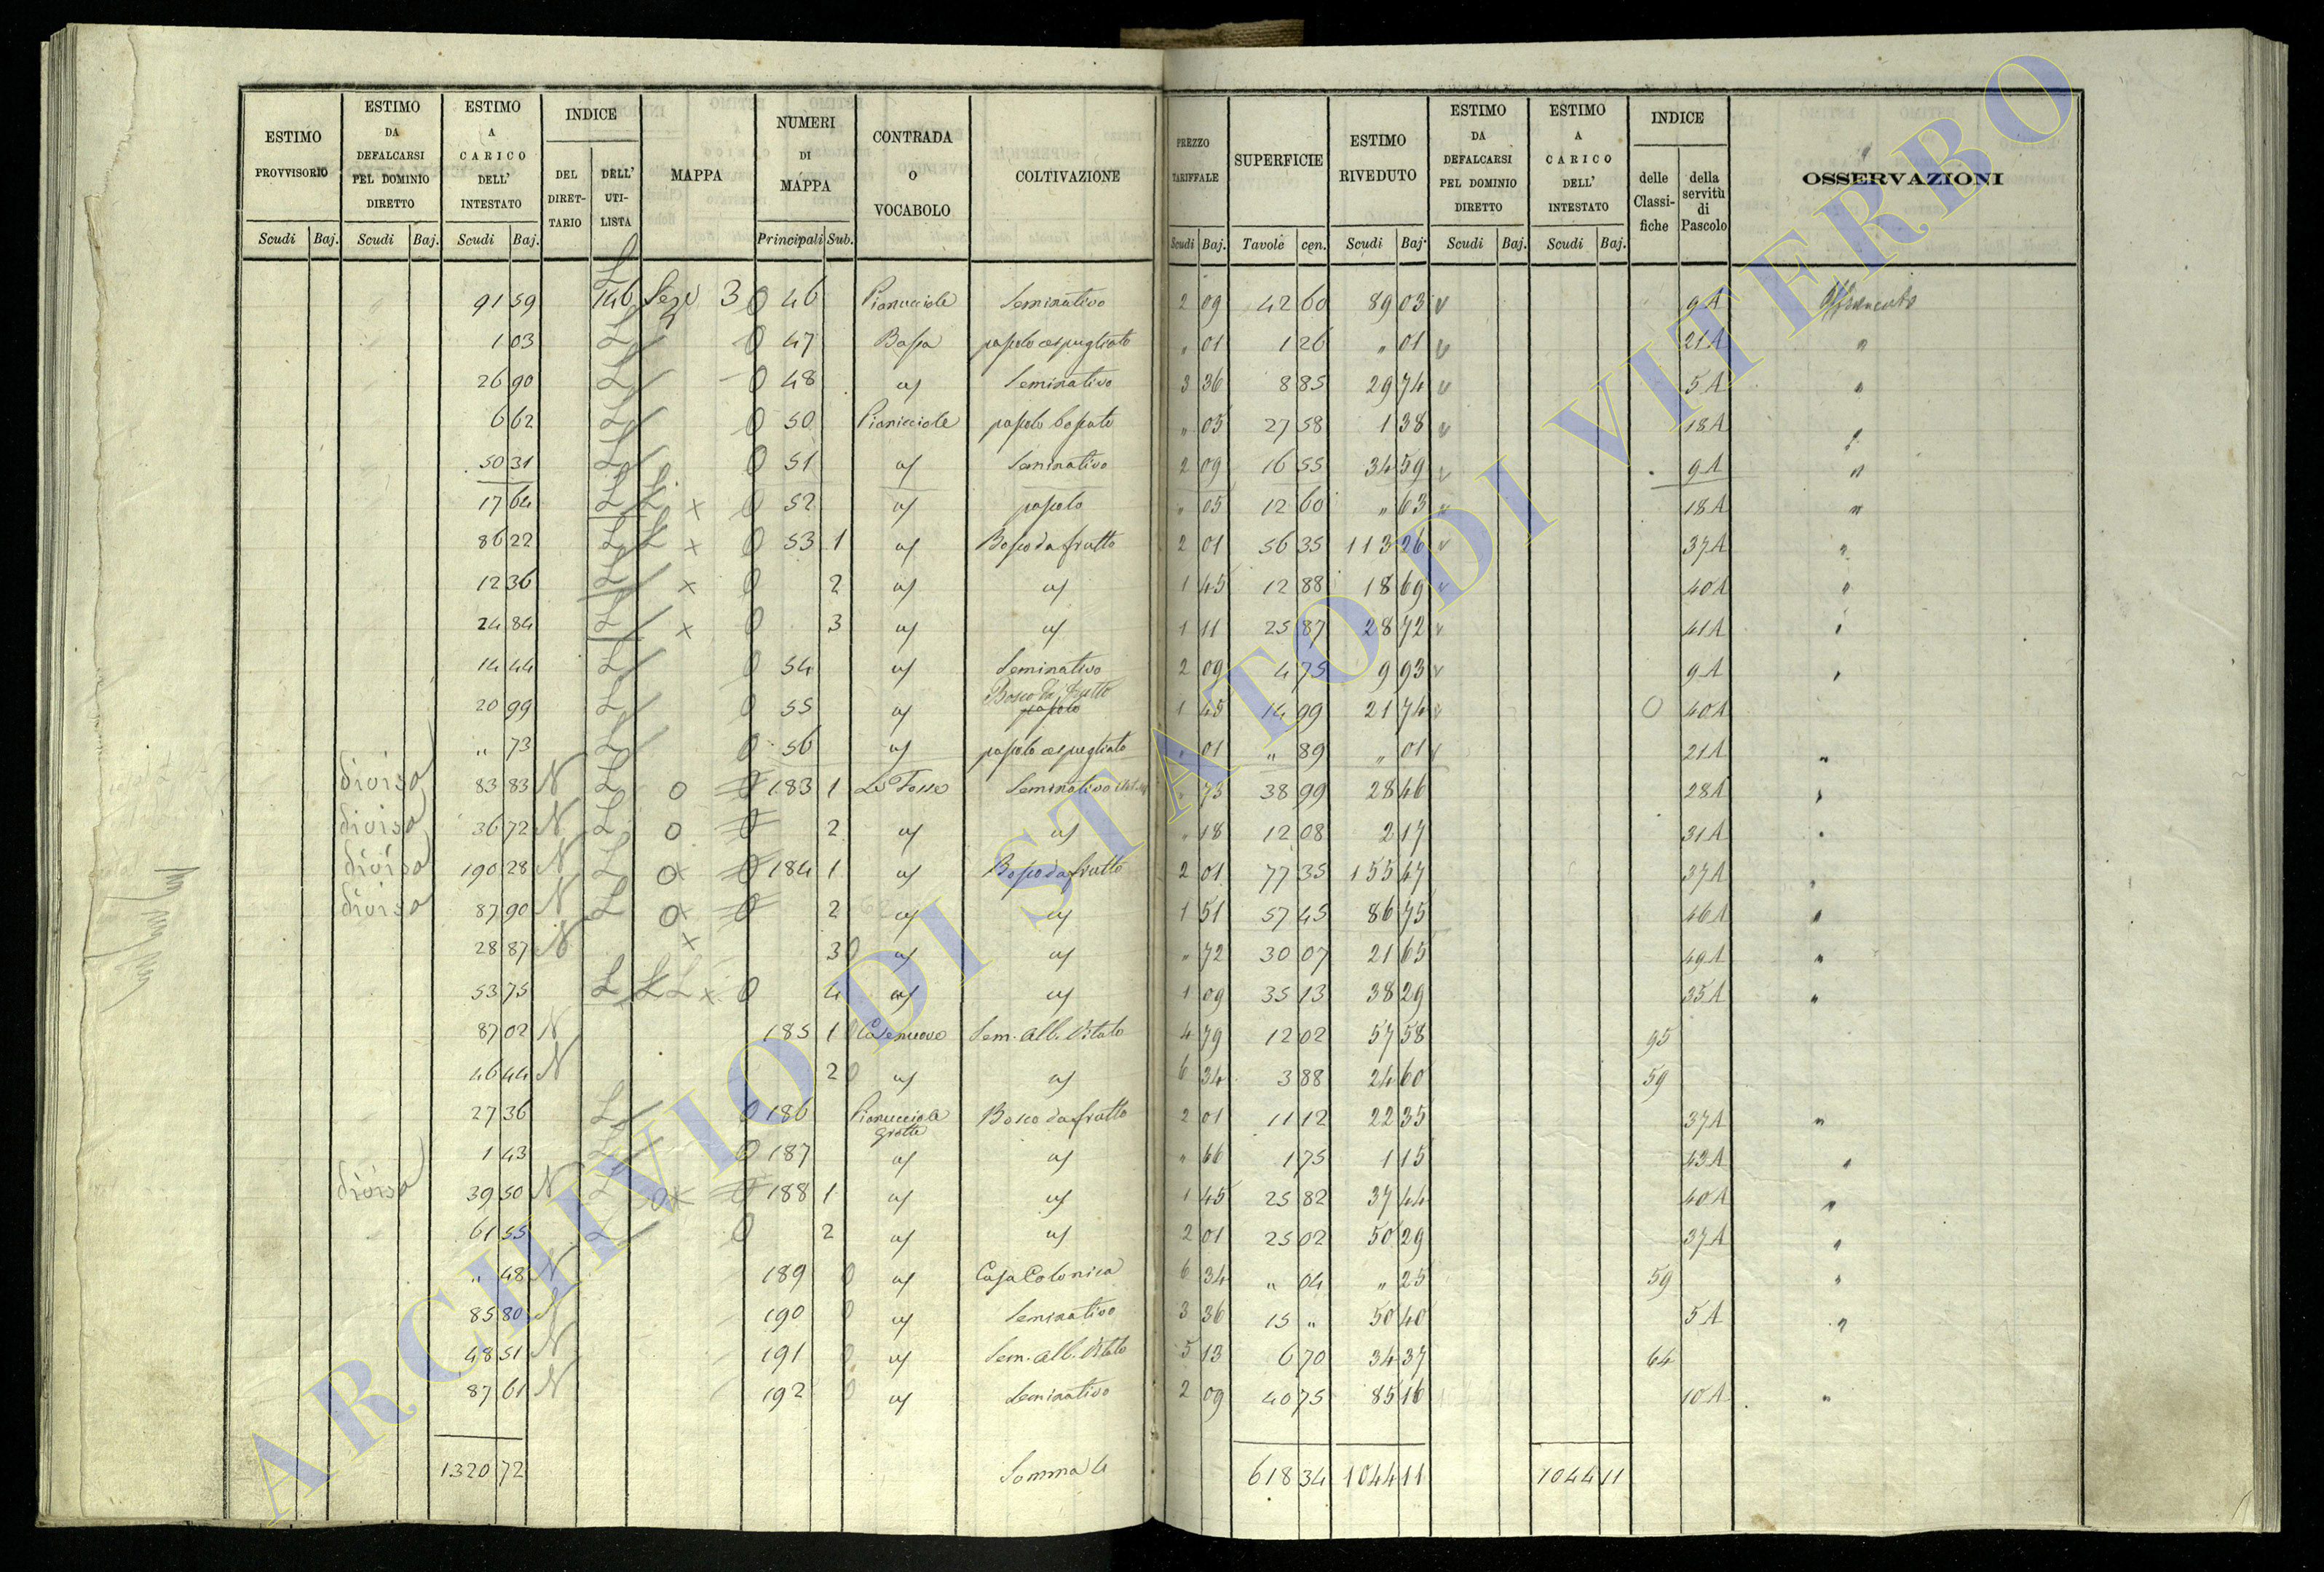 ESTIMO PROVVISORIO Scudi Baj.
ESTIMO DA DEFALCARSI PEL DOMINIO DIRETTO Scudi Baj.
ESTIMO A CARICO DELL' INTESTATO Scudi Baj.
INDICE DEL DIRETTARIO DELL' UTILISTA
MAPPA
NUMERI DI MAPPA Principali Sub.
CONTRADA O VOCABOLO
COLTIVAZIONE
PREZZO TARIFFALE Scudi Baj.
SUPERFICIE Tavole cen.
ESTIMO RIVEDUTO Scudi Baj.
ESTIMO DA DEFALCARSI PEL DOMINIO DIRETTO Scudi Baj.
ESTIMO A CARICO DELL' INTESTATO Scudi Baj.
INDICE delle Classifiche della servitù di Pascolo
OSSERVAZIONI
91 59 L 146 3 0 46 Pianucciole Seminativo 2 09 42 60 89 03 9A
1 03 L 0 47 Bassa pascolo cespugliato " 01 1 26 " 01 21A "
26 90 L 0 48 Seminativo 3 36 8 85 29 74 5A "
6 62 L 0 50 Pianicciole pascolo " 05 27 58 1 38 18A "
50 31 L 0 51 Seminativo 2 09 16 55 34 59 9A "
17 64 L L x 0 52 pascolo " 05 12 60 " 63 18A "
86 22 L L x 0 53 1 Bosco da frutto 2 01 56 35 113 26 37A "
12 36 L x 0 2 1 45 12 88 18 69 40A "
24 84 L x 0 3 1 11 25 87 28 72 41A "
14 44 L 0 54 Seminativo 2 09 4 75 9 93 9A "
20 99 L 0 55 Bosco da frutto pascolo 1 45 14 99 21 74 0 40A
" 73 L 0 56 pascolo cespugliato " 01 " 89 " 01 21A "
diviso 83 83 N L 0 0 183 1 Le Fosse Seminativo " 73 38 99 28 46 28A "
diviso 36 72 N L 0 0 2 " 18 12 08 2 17 31A "
diviso 190 28 N L 0x 0 184 1 Bosco da frutto 2 01 77 35 155 47 37A "
diviso 87 90 N L 0x 0 2 1 51 57 45 86 75 46A "
28 87 N x 3 0 " 72 30 07 21 65 49A "
53 75 L L L x 0 4 1 09 35 13 38 29 35A "
87 02 N 185 1 0 Casenuove Sem. alb. Vitato 4 79 12 02 57 58 95
46 44 N 2 0 6 34 3 88 24 60 59
27 36 L 0 186 Pianucciole Grotte Bosco da frutto 2 01 11 12 22 35 37A "
1 43 L 0 187 " 66 1 75 1 15 43A "
diviso 39 50 N L 0x 0 188 1 1 45 25 82 37 44 40A "
61 55 L 0 2 2 01 25 02 50 29 37A "
" 48 N 189 0 Casa Colonica 6 34 " 04 " 25 59 "
85 80 N 190 0 Seminativo 3 36 15 " 50 40 5A "
48 51 N 191 0 Sem. alb. Vitato 5 13 6 70 34 37 64
87 61 N 192 0 Seminativo 2 09 40 75 85 16 10A "
1320 72 Somma 618 34 1044 11 1044 11
ARCHIVIO DI STATO DI VITERBO